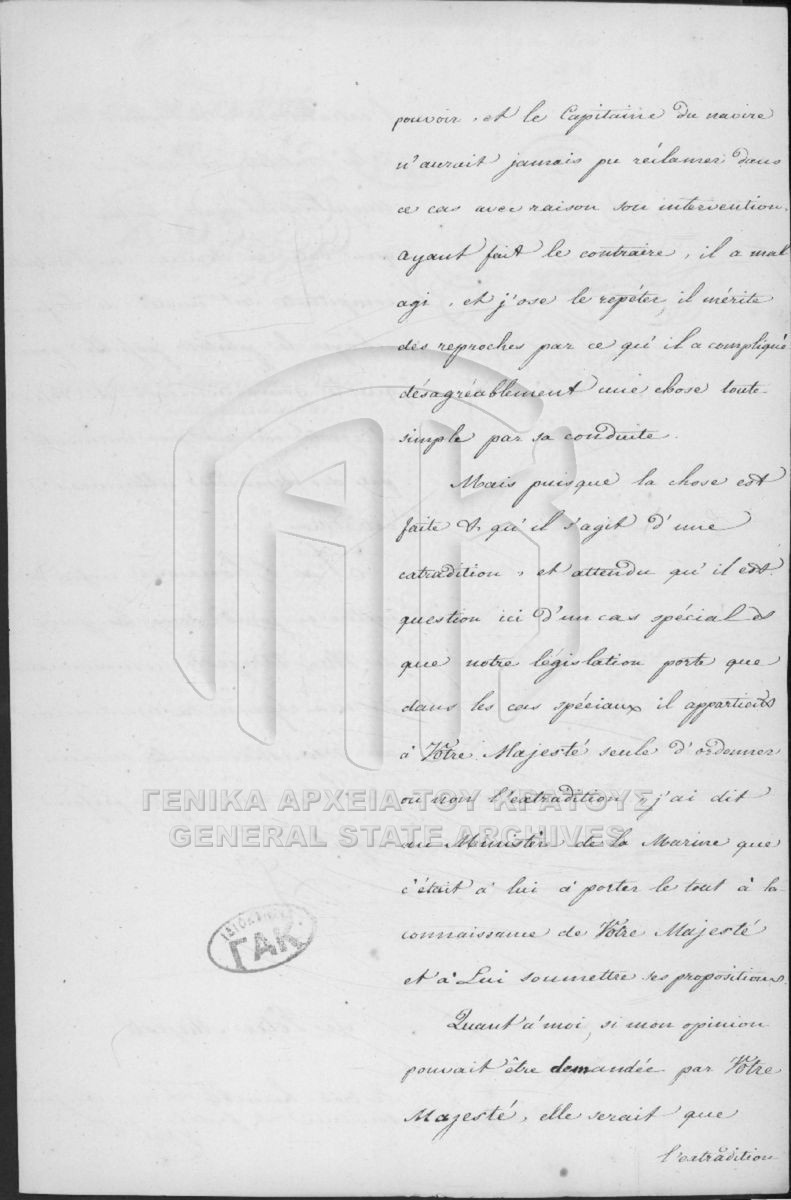 pouvoir, et le Capitaine du navire
n'aurait jamais pu réclamer dans
ce cas avec raison son intervention.
Ayant fait le contraire, il a mal
agi, et j'ose le repéter, il mérite
des reproches par ce qu'il a compliqué
désagréablement une chose toute
simple par sa conduite.
Mais puisque la chose est
faite & qu'il s'agit d'une
extradition, et attendu qu'il est
question ici d'un cas spécial et
que notre législation porte que
dans les cas spéciaux il appartient
à Votre Majesté seule d'ordonner
ou non l'extradition, j'ai dit
au Ministère de la Marine que
c'était à lui à porter le tout à la
connaissance de Votre Majesté
et à Lui soumettre ses propositions.
Quant à moi, si mon opinion
pouvait être demandée par Votre
Majesté, elle serait que
l'extradition
ΓΕΝΙΚΑ ΑΡΧΕΙΑ ΤΟΥ ΚΡΑΤΟΥΣ
GENERAL STATE ARCHIVES
ΓΑΚ